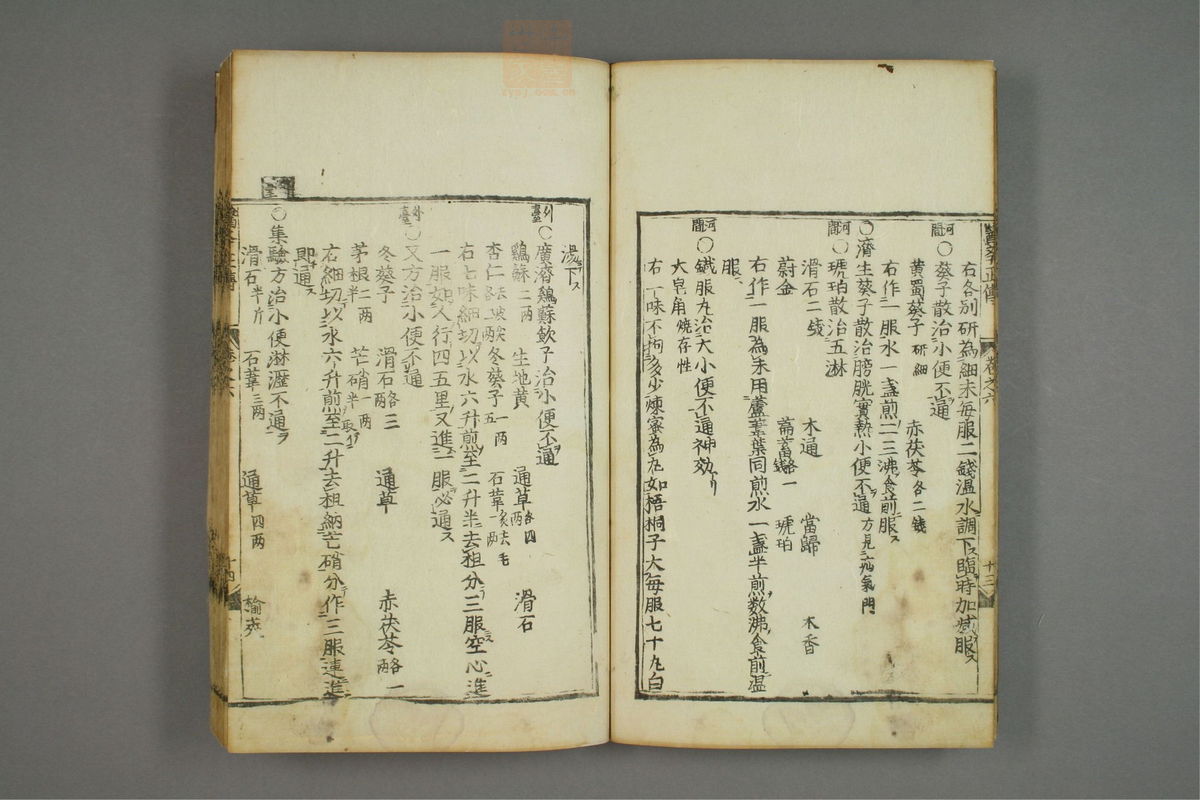 右各別研為細末每服二錢溫水調下ス臨時加減服ス
河間〇葵子散治小便不通
黃蜀葵子研細 赤茯苓各二錢
右作一服水一盞煎二三沸食前服ス
〇濟生葵子散治膀胱實熱小便不通方見疝氣門
河間〇琥珀散治五淋
滑石二錢 木通 當歸 木香
蔚金 萹蓄各一錢 琥珀
右作一服為末用蘆葦葉同煎水一盞半煎数沸食前温
服
河間〇鐵服丸治大小便不通神効
大皂角燒存性
右一味不拘多少煉蜜為丸如梧桐子大每服七十丸白
卷之六
十三
湯下ス
外臺〇廣濟鷄蘇飲子治小便不通
鷄蘇二两 生地黃 通草各四两 滑石
杏仁 冬葵子一两 石葦
右七味細切以水六升煎至二升半去粗分三服空心進
一服如人行四五里又進一服必通ス
外臺〇又方治小便不通
冬葵子 滑石各三两 通草 赤茯苓各一两
茅根二两 芒硝一两半
右細切以水六升煎至二升去粗納芒硝分作三服連進
即通ス
〇集驗方治小便淋瀝不通
滑石半斤 石葦三两 通草四两 榆
十四